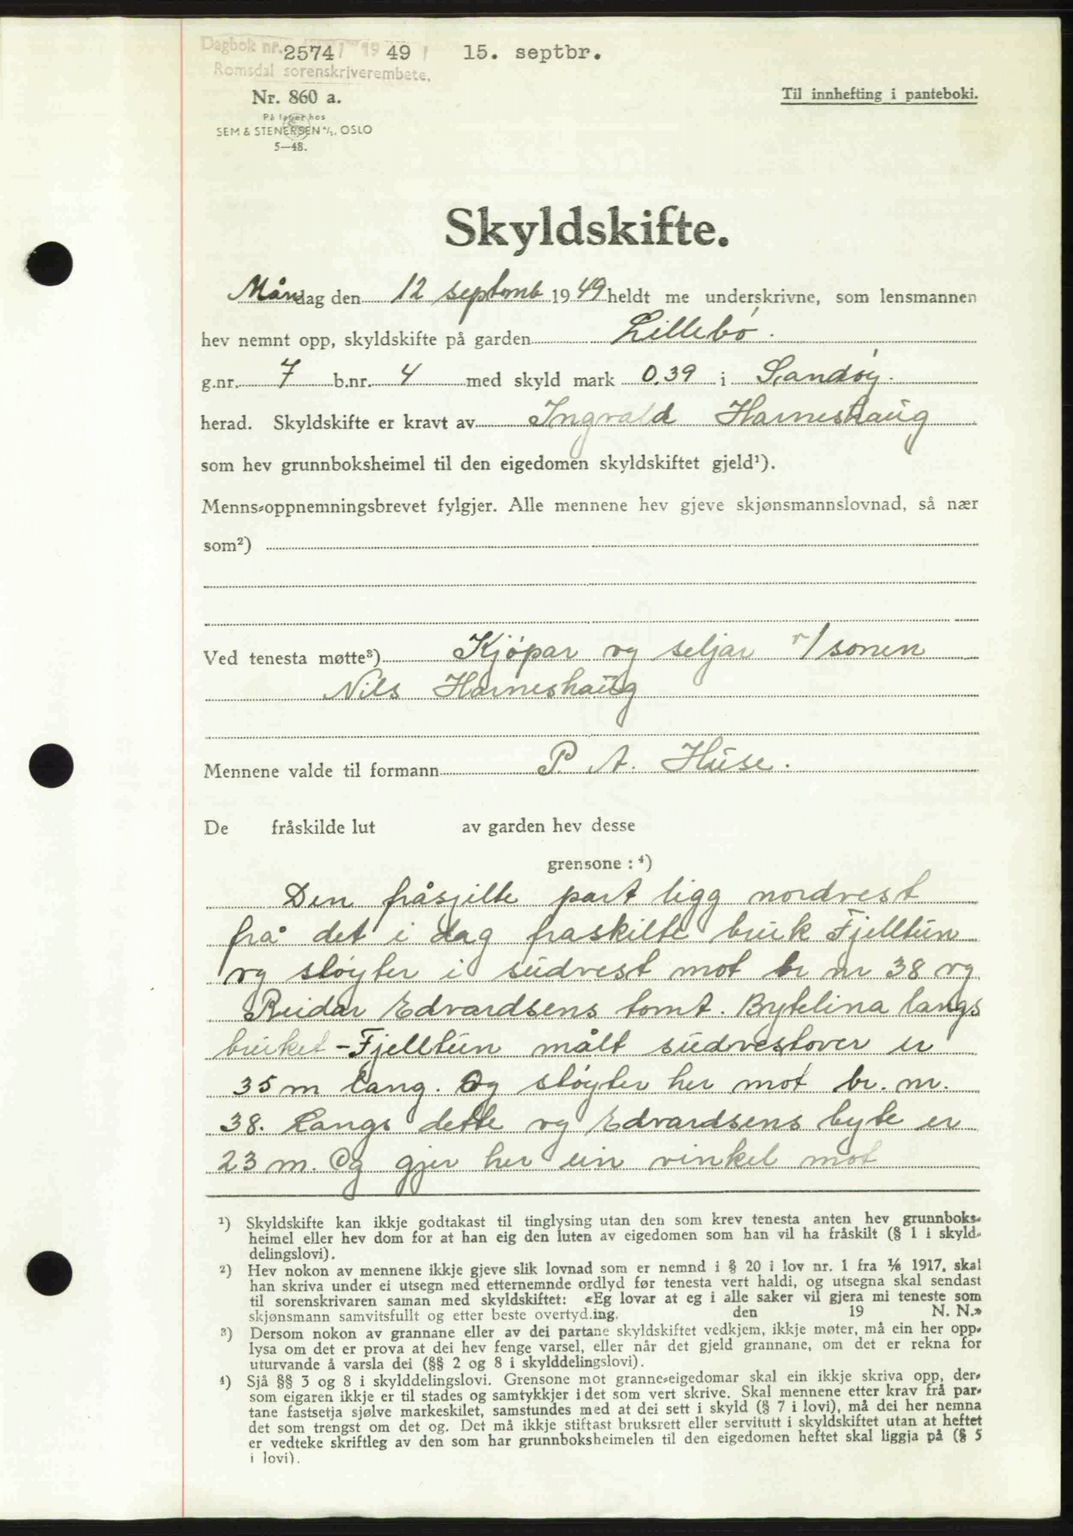 Dagbok nr. 2574 1949 15. septbr.
Romsdal sorenskriverembete.
Nr. 860 a.
Til innhefting i panteboki.
På lager hos
SEM & STENERSEN A/S, OSLO
5—48.
Skyldskifte.
Måndag den 12 septemb 1949 heldt me underskrivne, som lensmannen
hev nemnt opp, skyldskifte på garden Lillebø.
g.nr. 7 b.nr. 4 med skyld mark 0,39 i Sandøy.
herad. Skyldskifte er kravt av Ingvald Harneshaug
som hev grunnboksheimel til den eigedomen skyldskiftet gjeld¹).
Menns-oppnemningsbrevet fylgjer. Alle mennene hev gjeve skjønsmannslovnad, så nær
som²)
Ved tenesta møtte³) Kjøpar og seljar v/sonen
Nils Harneshaug
Mennene valde til formann P. A. Huse.
De fråskilde lut av garden hev desse
grensone : ⁴)
Den fråsjilte part ligg nordvest
frå det i dag fraskilte bruk Fjelltun
og støyter i sudvest mot br nr 38 og
Reidar Edvardsens tomt. Bytelina langs
bruket - Fjelltun målt sudvestover er
35 m lang. Og støyter her mot br. nr.
38. Langs dette og Edvardsens byte er
23 m. Og gjer her ein vinkel mot
¹) Skyldskifte kan ikkje godtakast til tinglysing utan den som krev tenesta anten hev grunnboks-
heimel eller hev dom for at han eig den luten av eigedomen som han vil ha fråskilt (§ 1 i skyld-
delingslovi).
²) Hev nokon av mennene ikkje gjeve slik lovnad som er nemnd i § 20 i lov nr. 1 fra ⅙ 1917, skal
han skriva under ei utsegn med etternemnde ordlyd før tenesta vert haldi, og utsegna skal sendast
til sorenskrivaren saman med skyldskiftet: «Eg lovar at eg i alle saker vil gjera mi teneste som
skjønsmann samvitsfullt og etter beste overtyding. den 19 N. N.»
³) Dersom nokon av grannane eller av dei partane skyldskiftet vedkjem, ikkje møter, må ein her opp-
lysa om det er prova at dei hev fenge varsel, eller når det gjeld grannane, om det er rekna for
uturvande å varsla dei (§§ 2 og 8 i skylddelingslovi).
⁴) Sjå §§ 3 og 8 i skylddelingslovi. Grensone mot granne-eigedomar skal ein ikkje skriva opp, der-
som eigaren ikkje er til stades og samtykkjer i det som vert skrive. Skal mennene etter krav frå par-
tane fastsetja sjølve markeskilet, samstundes med at dei sett i skyld (§ 7 i lovi), må dei her nemna
det som trengst om det og. Det må ikkje stiftast bruksrett eller servitutt i skyldskiftet utan at heftet
er vedteke skriftleg av den som har grunnboksheimelen til den eigedomen heftet skal liggja på (§ 5
i lovi).